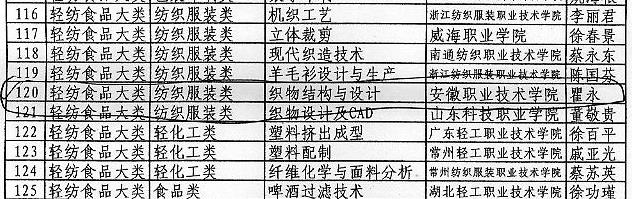 116 轻纺食品大类 纺织服装类 机织工艺 浙江纺织服装职业技术学院 李丽君
117 轻纺食品大类 纺织服装类 立体裁剪 威海职业学院 徐春景
118 轻纺食品大类 纺织服装类 现代织造技术 南通纺织职业技术学院 蔡永东
119 轻纺食品大类 纺织服装类 羊毛衫设计与生产 浙江纺织服装职业技术学院 陈国芬
120 轻纺食品大类 纺织服装类 织物结构与设计 安徽职业技术学院 瞿永
121 轻纺食品大类 纺织服装类 织物设计及CAD 山东科技职业学院 董敬贵
122 轻纺食品大类 轻化工类 塑料挤出成型 广东轻工职业技术学院 徐百平
123 轻纺食品大类 轻化工类 塑料配制 常州轻工职业技术学院 戚亚光
124 轻纺食品大类 轻化工类 纤维化学与面料分析 常州纺织服装职业技术学院 蔡苏英
125 轻纺食品大类 食品类 啤酒过滤技术 湖北轻工职业技术学院 徐功瑾